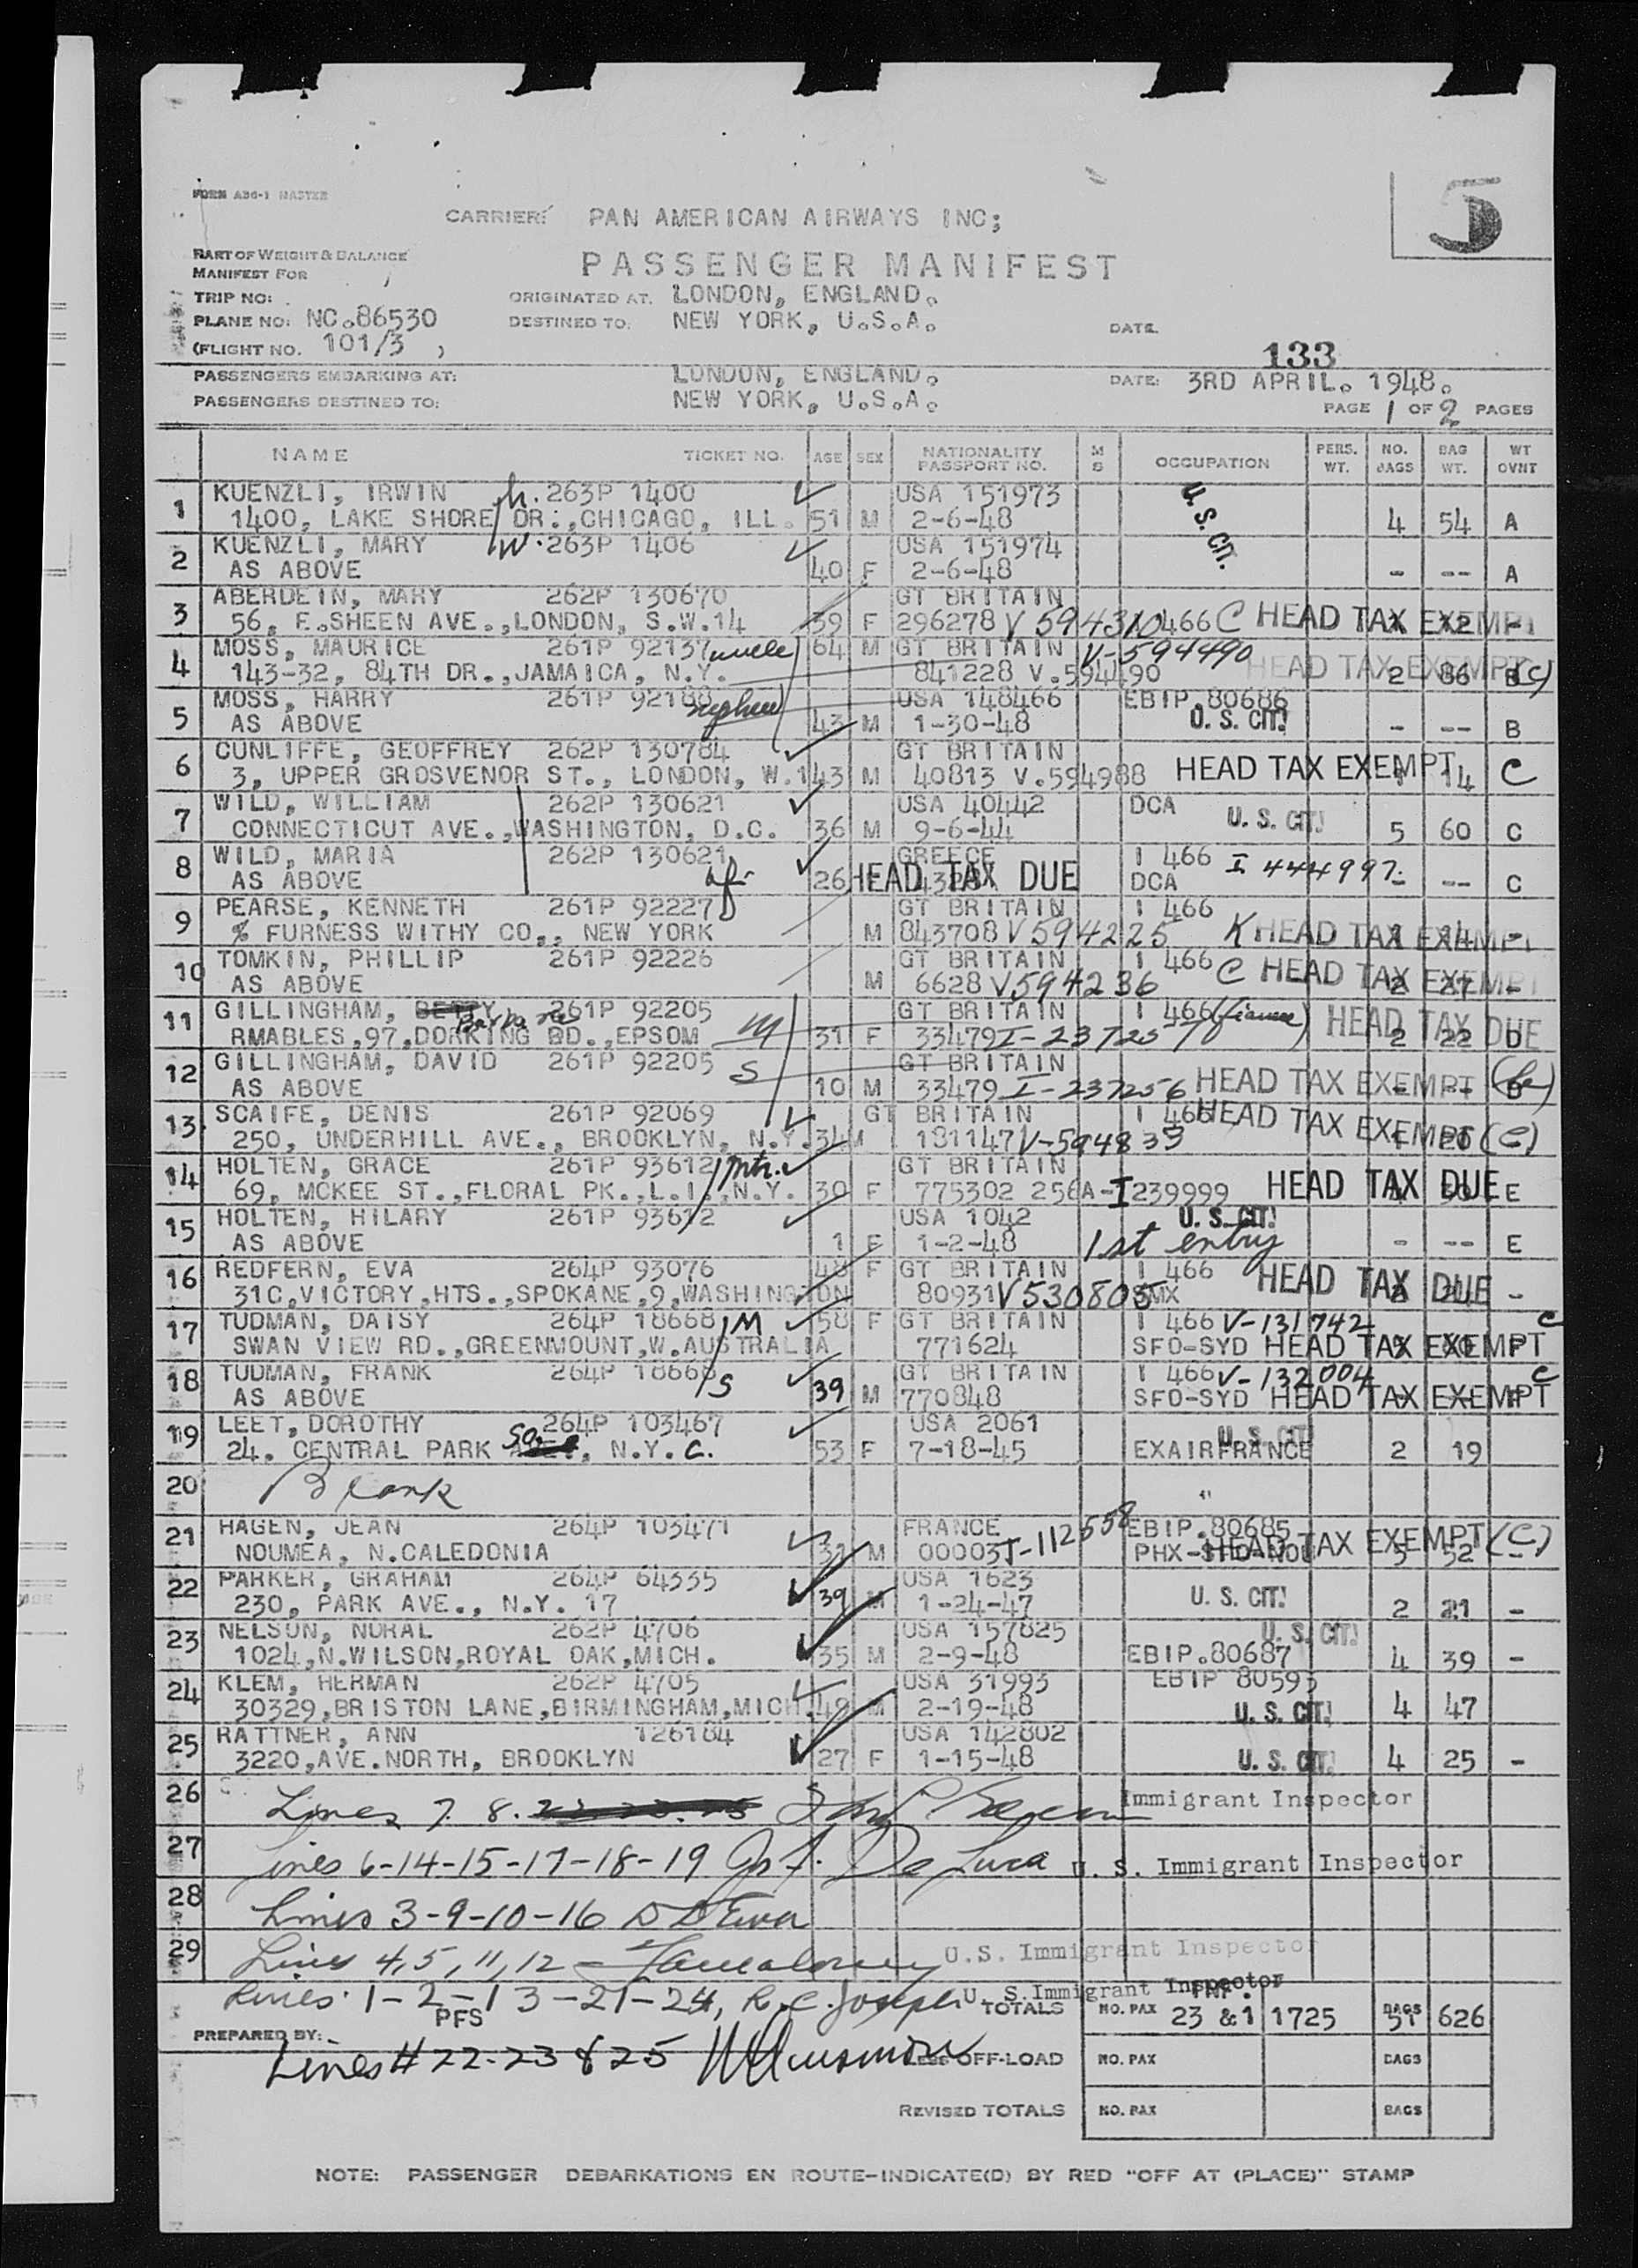 FORM A36-1 MASTER
5
CARRIER: PAN AMERICAN AIRWAYS INC;
PART OF WEIGHT & BALANCE
MANIFEST FOR
PASSENGER MANIFEST
TRIP NO:
ORIGINATED AT. LONDON, ENGLAND.
PLANE NO: NC.86530
DESTINED TO. NEW YORK, U.S.A.
DATE.
(FLIGHT NO. 101/3 )
133
PASSENGERS EMBARKING AT: LONDON, ENGLAND.
DATE: 3RD APRIL. 1948.
PASSENGERS DESTINED TO: NEW YORK, U.S.A.
PAGE 1 OF 2 PAGES
NAME TICKET NO. AGE SEX NATIONALITY PASSPORT NO. M S OCCUPATION PERS. WT. NO. BAGS BAG WT. WT OVNT
1 KUENZLI, IRWIN h. 263P 1400 USA 151973 U.S.CIT.
1400, LAKE SHORE DR.,CHICAGO, ILL. 51 M 2-6-48 4 54 A
2 KUENZLI, MARY W. 263P 1406 USA 151974
AS ABOVE 40 F 2-6-48 - -- A
3 ABERDEIN, MARY 262P 130670 GT BRITAIN
56, E.SHEEN AVE.,LONDON, S.W.14 39 F 296278 V 594310 466 C HEAD TAX EXEMPT
4 MOSS, MAURICE 261P 92137 uncle 64 M GT BRITAIN V-594490
143-32, 84TH DR.,JAMAICA, N.Y. 841228 V.594490 HEAD TAX EXEMPT 2 86 B (C)
5 MOSS, HARRY 261P 92188 nephew USA 148466 EBIP.80686
AS ABOVE 43 M 1-30-48 U. S. CIT! - -- B
6 CUNLIFFE, GEOFFREY 262P 130784 GT BRITAIN
3, UPPER GROSVENOR ST., LONDON, W.1 43 M 40813 V.594988 HEAD TAX EXEMPT 14 C
7 WILD, WILLIAM 262P 130621 USA 40442 DCA
CONNECTICUT AVE.,WASHINGTON, D.C. 36 M 9-6-44 U. S. CIT! 5 60 C
8 WILD, MARIA 262P 130621 GREECE I 466 I 444997
AS ABOVE 26 HEAD TAX DUE DCA - -- C
9 PEARSE, KENNETH 261P 92227 GT BRITAIN I 466
% FURNESS WITHY CO., NEW YORK M 843708 V594225 K HEAD TAX EXEMPT
10 TOMKIN, PHILLIP 261P 92226 GT BRITAIN I 466
AS ABOVE M 6628 V594236 C HEAD TAX EXEMPT
11 GILLINGHAM, BETTY 261P 92205 GT BRITAIN I 466 (fiancee)
Barbara
RMABLES,97,DORKING RD.,EPSOM M 31 F 33479 HEAD TAX DUE 2 22 D
12 GILLINGHAM, DAVID 261P 92205 S GT BRITAIN
AS ABOVE 10 M 33479 I-237256 HEAD TAX EXEMPT
13 SCAIFE, DENIS 261P 92069 GT BRITAIN I 466
250, UNDERHILL AVE., BROOKLYN, N.Y. 34 M 181147 V-594833 HEAD TAX EXEMPT (C)
14 HOLTEN, GRACE 261P 93612 Mth. GT BRITAIN
69, MCKEE ST.,FLORAL PK.,L.I.,N.Y. 30 F 775302 256A-I239999 HEAD TAX DUE E
15 HOLTEN, HILARY 261P 93612 USA 1042 U. S. CIT!
AS ABOVE 1 F 1-2-48 1st entry - -- E
16 REDFERN, EVA 264P 93076 48 F GT BRITAIN I 466
31C,VICTORY,HTS.,SPOKANE,9,WASHINGTON 80931 V530805 HEAD TAX DUE -
17 TUDMAN, DAISY 264P 18668 M 58 F GT BRITAIN I 466 V-131742 C
SWAN VIEW RD.,GREENMOUNT,W.AUSTRALIA 771624 SFO-SYD HEAD TAX EXEMPT
18 TUDMAN, FRANK 264P 18668 S GT BRITAIN I 466 V-132004 C
AS ABOVE 39 M 770848 SFO-SYD HEAD TAX EXEMPT
19 LEET, DOROTHY 264P 103467 USA 2061 U. S. CIT!
24. CENTRAL PARK So., N.Y.C. 53 F 7-18-45 EXAIRFRANCE 2 19
20 Blank
21 HAGEN, JEAN 264P 103471 FRANCE EBIP.80685
NOUMEA, N.CALEDONIA 31 M 00003 I-112558 PHX-SFO-NOU HEAD TAX EXEMPT (C) 5 52 -
22 PARKER, GRAHAM 264P 64335 USA 1623
230, PARK AVE., N.Y. 17 39 M 1-24-47 U. S. CIT! 2 21 -
23 NELSON, NORAL 262P 4706 USA 157825 U. S. CIT!
1024,N.WILSON,ROYAL OAK,MICH. 35 M 2-9-48 EBIP.80687 4 39 -
24 KLEM, HERMAN 262P 4705 USA 31993 EBIP 80593
30329,BRISTON LANE,BIRMINGHAM,MICH. 49 M 2-19-48 U. S. CIT! 4 47
25 RATTNER, ANN 126184 USA 142802
3220,AVE.NORTH, BROOKLYN 27 F 1-15-48 U. S. CIT! 4 25 -
26 Lines 7. 8. Immigrant Inspector
27 Lines 6-14-15-17-18-19 Jos. F. De Luca U. S. Immigrant Inspector
28 Lines 3-9-10-16
29 Lines 4,5,11,12 - U.S. Immigrant Inspector
Lines 1-2-13-21-24, R. C. Joseph U. S. Immigrant Inspector
PFS TOTALS NO. PAX 23 &1 INF. 1725 BAGS 51 626
PREPARED BY:
Lines # 22-23 & 25 LESS OFF-LOAD NO. PAX BAGS
REVISED TOTALS NO. PAX BAGS
NOTE: PASSENGER DEBARKATIONS EN ROUTE-INDICATE(D) BY RED "OFF AT (PLACE)" STAMP